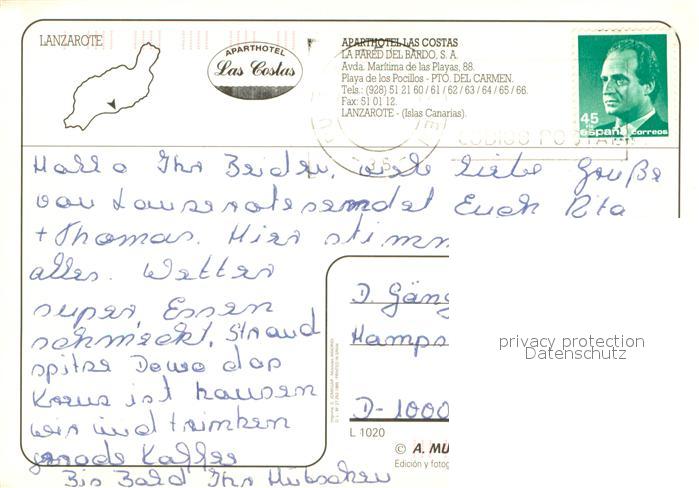 LANZAROTE
APARTHOTEL
Las Costas
APARTHOTEL LAS COSTAS
LA PARED DEL BARDO, S. A.
Avda. Marítima de las Playas, 88.
Playa de los Pocillos - PTO. DEL CARMEN.
Tels.: (928) 51 21 60 / 61 / 62 / 63 / 64 / 65 / 66.
Fax: 51 01 12.
LANZAROTE - (Islas Canarias).
45
españa correos
CODIGO POSTAL
Hallo Ihr Beiden, viele liebe Grüße
von Lanzerote sendet Euch Rita
+ Thomas. Hier stimm
alles. Wetter
super, Essen
schmeckt, Strand
spitze
ist
wir und trinken
grade Kaffee
Bis Bald Ihr Hübschen
D. Gäng
Hamps
D-1000
L 1020
© A. MU
Edición y fotog
privacy protection
Datenschutz